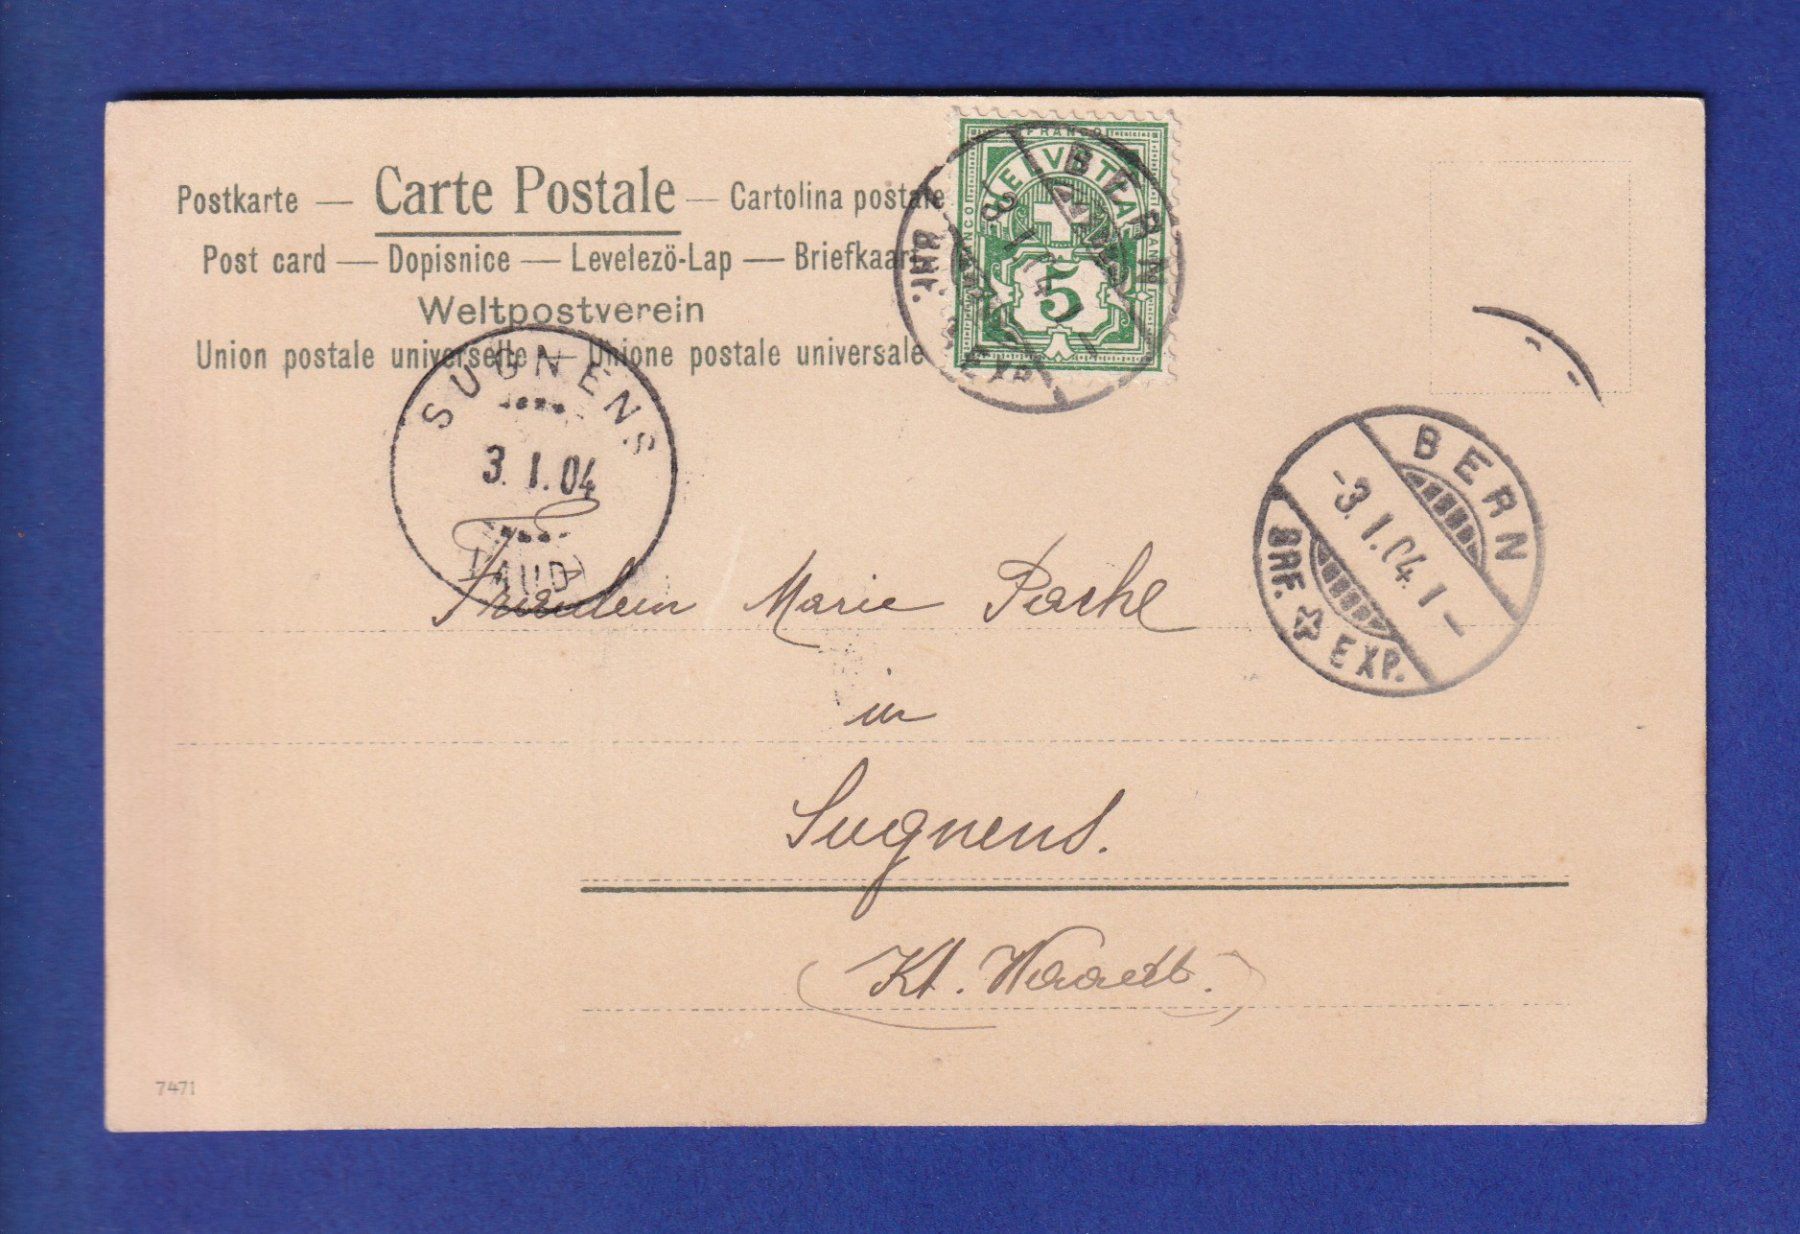 Postkarte — Carte Postale — Cartolina postale
Post card — Dopisnice — Levelezö-Lap — Briefkaart
Weltpostverein
Union postale universelle — Unione postale universale
FRANCO
HELVETIA
5
BERN
BRF. EXP.
SUGNENS
3. I. 04
(VAUD)
BERN
-3. I. 04. I -
BRF. EXP.
Fräulein Marie Pache
in
Sugnens.
(Kt. Waadt.)
7471